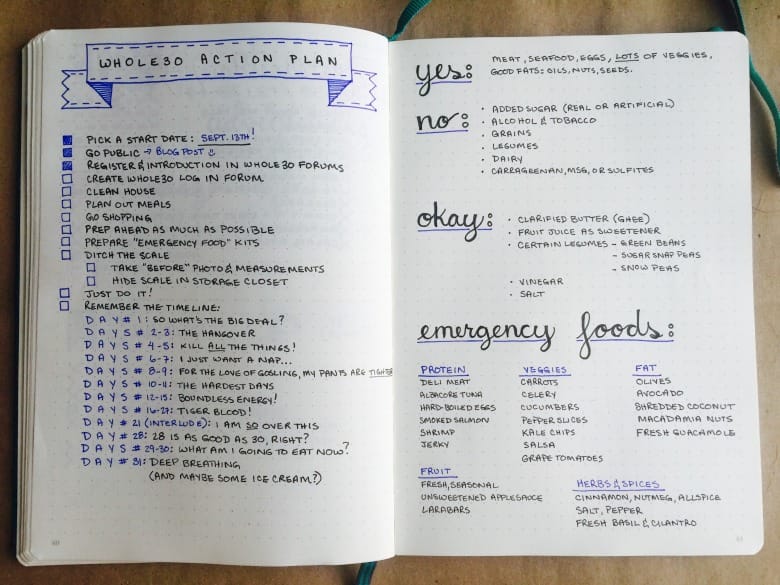 WHOLE30 ACTION PLAN
PICK A START DATE: SEPT. 13TH!
GO PUBLIC → BLOG POST
REGISTER & INTRODUCTION IN WHOLE30 FORUMS
CREATE WHOLE30 LOG IN FORUM
CLEAN HOUSE
PLAN OUT MEALS
GO SHOPPING
PREP AHEAD AS MUCH AS POSSIBLE
PREPARE "EMERGENCY FOOD" KITS
DITCH THE SCALE
TAKE "BEFORE" PHOTO & MEASUREMENTS
HIDE SCALE IN STORAGE CLOSET
JUST DO IT!
REMEMBER THE TIMELINE:
DAY # 1: SO WHAT'S THE BIG DEAL?
DAYS # 2-3: THE HANGOVER
DAYS # 4-5: KILL ALL THE THINGS!
DAYS # 6-7: I JUST WANT A NAP...
DAYS # 8-9: FOR THE LOVE OF GOSLING, MY PANTS ARE TIGHTER
DAYS # 10-11: THE HARDEST DAYS
DAYS # 12-15: BOUNDLESS ENERGY!
DAYS # 16-27: TIGER BLOOD!
DAY # 21 (INTERLUDE): I AM SO OVER THIS
DAY # 28: 28 IS AS GOOD AS 30, RIGHT?
DAYS # 29-30: WHAT AM I GOING TO EAT NOW?
DAY # 31: DEEP BREATHING
(AND MAYBE SOME ICE CREAM?)
yes: MEAT, SEAFOOD, EGGS, LOTS OF VEGGIES,
GOOD FATS: OILS, NUTS, SEEDS.
no:
• ADDED SUGAR (REAL OR ARTIFICIAL)
• ALCOHOL & TOBACCO
• GRAINS
• LEGUMES
• DAIRY
• CARRAGEENAN, MSG, OR SULFITES
okay:
• CLARIFIED BUTTER (GHEE)
• FRUIT JUICE AS SWEETENER
• CERTAIN LEGUMES - GREEN BEANS
- SUGAR SNAP PEAS
- SNOW PEAS
• VINEGAR
• SALT
emergency foods:
PROTEIN
DELI MEAT
ALBACORE TUNA
HARD-BOILED EGGS
SMOKED SALMON
SHRIMP
JERKY
VEGGIES
CARROTS
CELERY
CUCUMBERS
PEPPER SLICES
KALE CHIPS
SALSA
GRAPE TOMATOES
FAT
OLIVES
AVOCADO
SHREDDED COCONUT
MACADAMIA NUTS
FRESH GUACAMOLE
FRUIT
FRESH, SEASONAL
UNSWEETENED APPLESAUCE
LARABARS
HERBS & SPICES
CINNAMON, NUTMEG, ALLSPICE
SALT, PEPPER
FRESH BASIL & CILANTRO